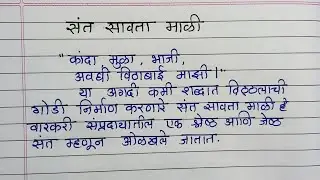 संत सावता माळी
"कांदा मुळा, भाजी,
अवघी विठाबाई माझी।"
या अगदी कमी शब्दात विठ्ठलाची
गोडी निर्माण करणारे संत सावता माळी हे
वारकरी संप्रदायातील एक श्रेष्ठ आणि जेष्ठ
संत म्हणून ओळखले जातात.